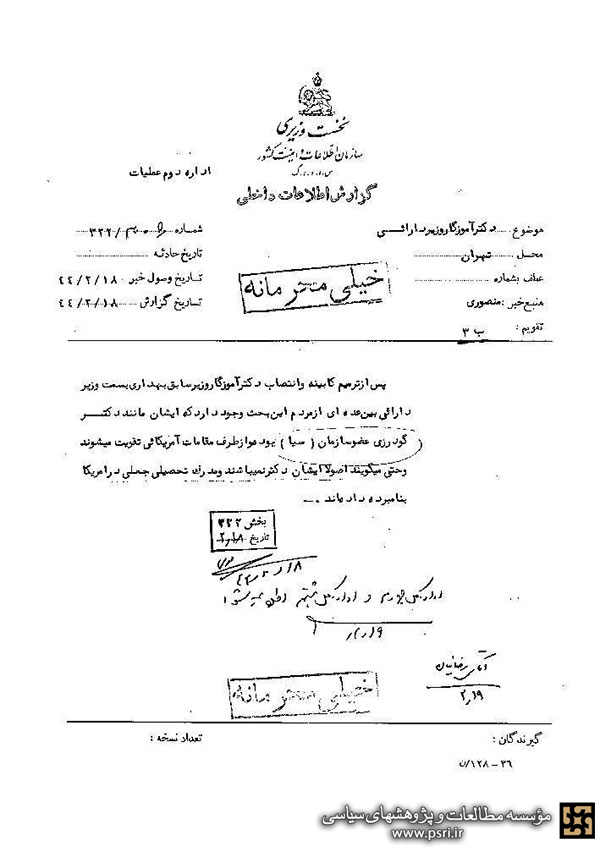 نخست وزیری
سازمان اطلاعات و امنیت کشور
س.ا.و.ا.ک
اداره دوم عملیات
گزارش اطلاعات داخلی
موضوع : دکتر آموزگار وزیر دارائی
شماره /۳۲۲
محل : تهران
تاریخ حادثه
عطف بشماره
تاریخ وصول خبر ۴۴/۲/۱۸
منبع خبر : منصوری
تاریخ گزارش ۴۴/۲/۱۸
تقویم : ب ۳
خیلی محرمانه
پس از ترمیم کابینه و انتصاب دکتر آموزگار وزیر سابق بهداری بسمت وزیر
دارائی بین عده ای از مردم این بحث وجود دارد که ایشان مانند دکتر
گودرزی عضو سازمان ( سیا ) بوده و از طرف مقامات آمریکائی تقویت میشوند
و حتی میگویند اصولا ایشان دکتر نمیباشند و مدرک تحصیلی جعلی در امریکا
بنامبرده داده اند .
بخش ۳۲۲
تاریخ ۲/۱۸
۲/۱۹
آقای
۲/۱۹
خیلی محرمانه
گیرندگان :
تعداد نسخه :
۳۶-۱۲۸/ن
مؤسسه مطالعات و پژوهشهای سیاسی
www.psri.ir